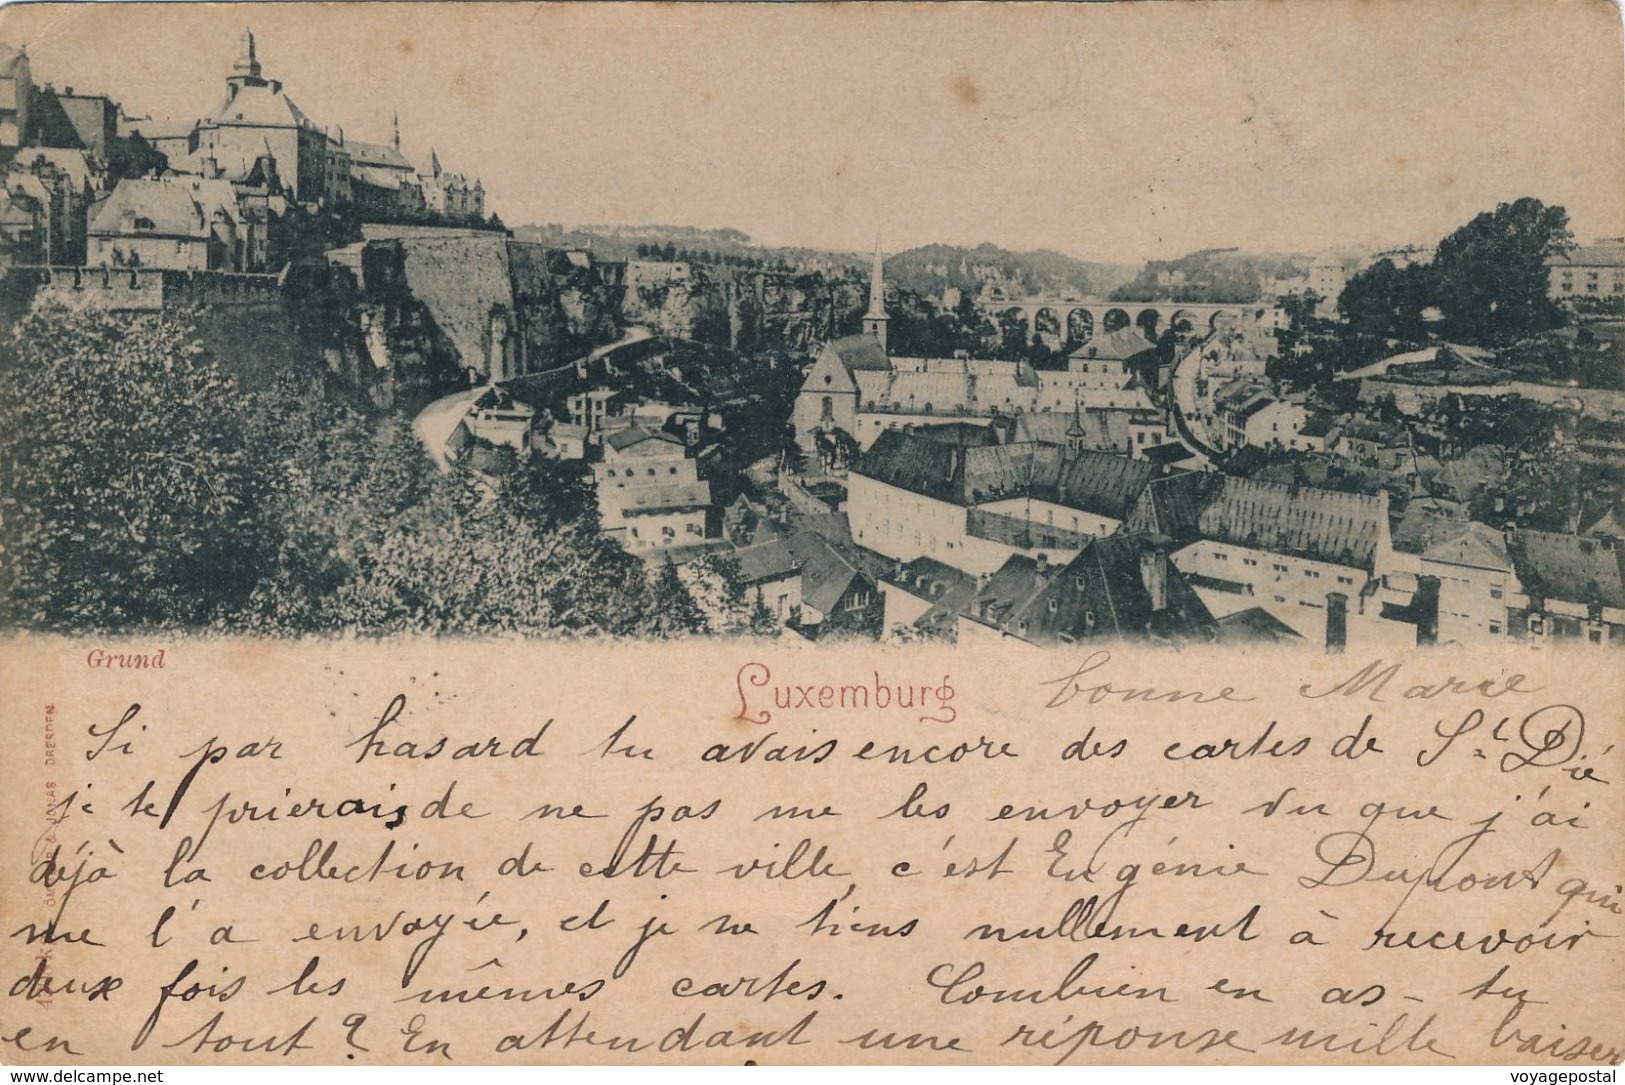 Grund
Luxemburg
bonne Marie
Si par hasard tu avais encore des cartes de St Dié
je te prierais de ne pas me les envoyer vu que j'ai
déjà la collection de cette ville, c'est Eugénie Dupont qui
me l'a envoyée, et je ne tiens nullement à recevoir
deux fois les mêmes cartes. Combien en as-tu
en tout? En attendant une réponse mille baiser
& JONAS DRESDEN
www.delcampe.net
voyagepostal